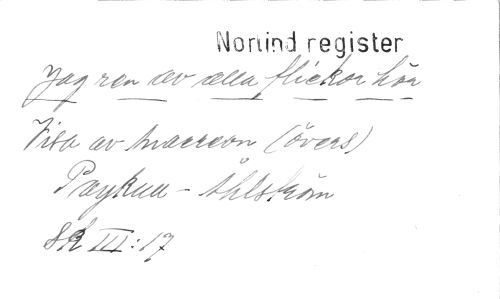 Norlind register
Jag ren av alla flickor här
Visa av (övers)
Paykull - Åhlström
SK III:17